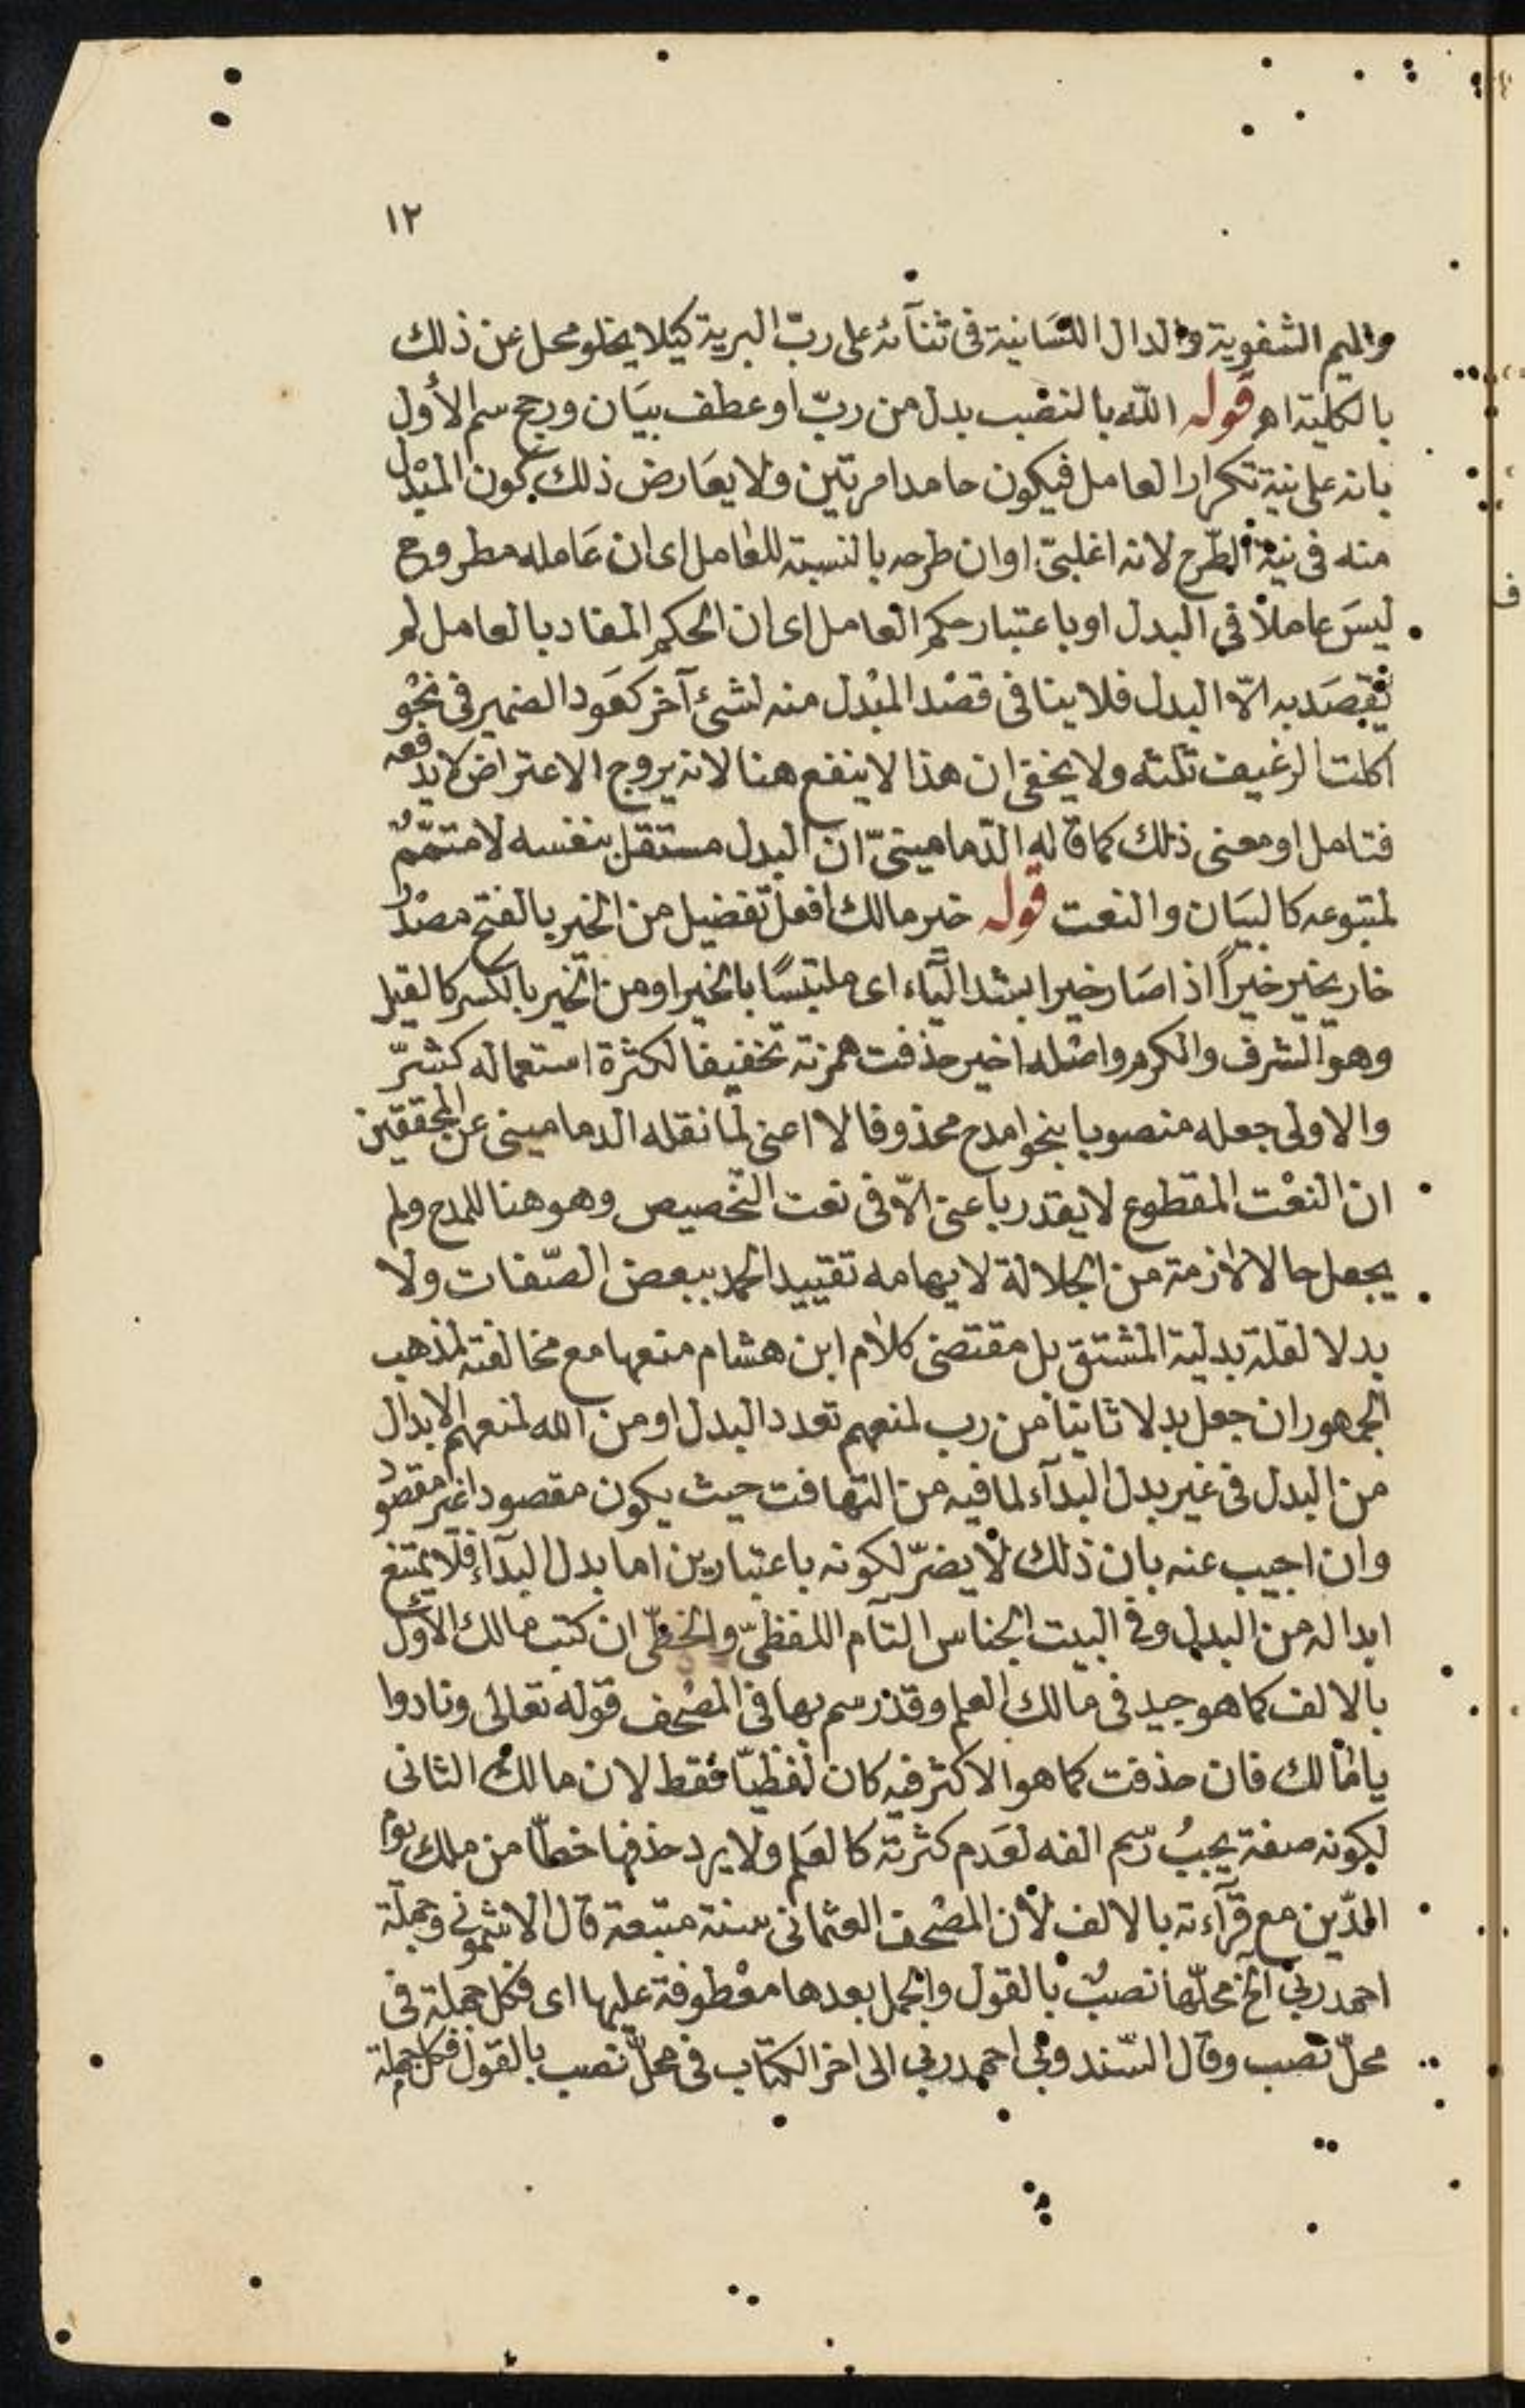 ١٢
والميم الشفوية والدال اللسانية فى ثنآئه على ربّ البرية كيلا يخلو محل عن ذلك
بالكلية اهـ قوله الله بالنصب بدل من ربّ او عطف بيَان ورجح سم الأول
بانه على نية تكرار العامل فيكون حامدا مرتين ولا يعَارض ذلك كون المبْدَل
منه فى نية الطّرح لانه اغلبىّ او ان طرحه بالنسبة للعامل اى ان عَامله مطروح
ليسَ عاملاً فى البدل او باعتبار حكم العامل اى ان الحكم المفاد بالعامل لم
يُقصَد به الاّ البدل فلا ينافى قصْد المبْدل منه لشئ آخر كعَود الضمير فى نحْو
اكلت الرغيف ثلثه ولا يخفى ان هذا لا ينفع هنا لانه يروج الاعتراض لا يدفعه
فتامل او معنى ذلك كما قاله الدّمامينىّ ان البدل مستقل بنفسه لا متمّمٌ
لمتبوعه كالبيَان والنعت قوله خير مالك افعل تفضيل من الخير بالفتح مصْدر
خار يخير خيراً اذا صَار خيرا بشد اليَّاء اى ملتبسًا بالخير او من الخير بالكسر كالقيل
وهو الشرف والكرم واصْله اخير حذفت همزته تخفيفا لكثرة استعماله كشرّ
والاولى جعله منصوبا بنحو امدح محذوفا لا اعنى لما نقله الدمامينى عن المحققين
ان النعْت المقطوع لا يقدر باعنى الاّ فى نعت التخصيص وهو هنا للمدح ولم
يجعل حالا لازمة من الجلالة لايهامه تقييد الحمد ببعض الصّفات ولا
بدلا لقلة بدلية المشتق بل مقتضى كلام ابن هشام منعها مع مخالفته لمذهب
الجمهور ان جعل بدلا ثانيا من رب لمنعهم تعدد البدل او من الله لمنعهم الابدال
من البدل فى غير بدل البدآء لما فيه من التهافت حيث يكون مقصودا غير مقصود
وان اجيب عنه بان ذلك لا يضرّ لكونه باعتبارين اما بدل البدآء فلا يمتنع
ابداله من البدل وفى البيت الجناس التآم اللفظىّ والخطّى ان كتب مالك الاول
بالالف كما هو جيد فى مالك العلم وقد رسم بها فى المصْحف قوله تعالى ونادوا
يا مالك فان حذفت كما هو الاكثر فيه كان لفظيّا فقط لان مالك الثانى
لكونه صفة يجبُ رسم الفه لعَدم كثرته كالعَلم ولا يرد حذفها خطّا من ملك يوم
الدّين مع قرآءته بالالف لأن المصْحف العثمانى سنة متبعة قال الاشمونى وجملة
احمد ربى الخ محلّها نصبٌ بالقول والجمل بعدها معْطوفة عليها اى فكل جملة فى
محلّ نصب وقال السّندوبى احمد ربى الى اخر الكتاب فى محلّ نصب بالقول فكل جملة